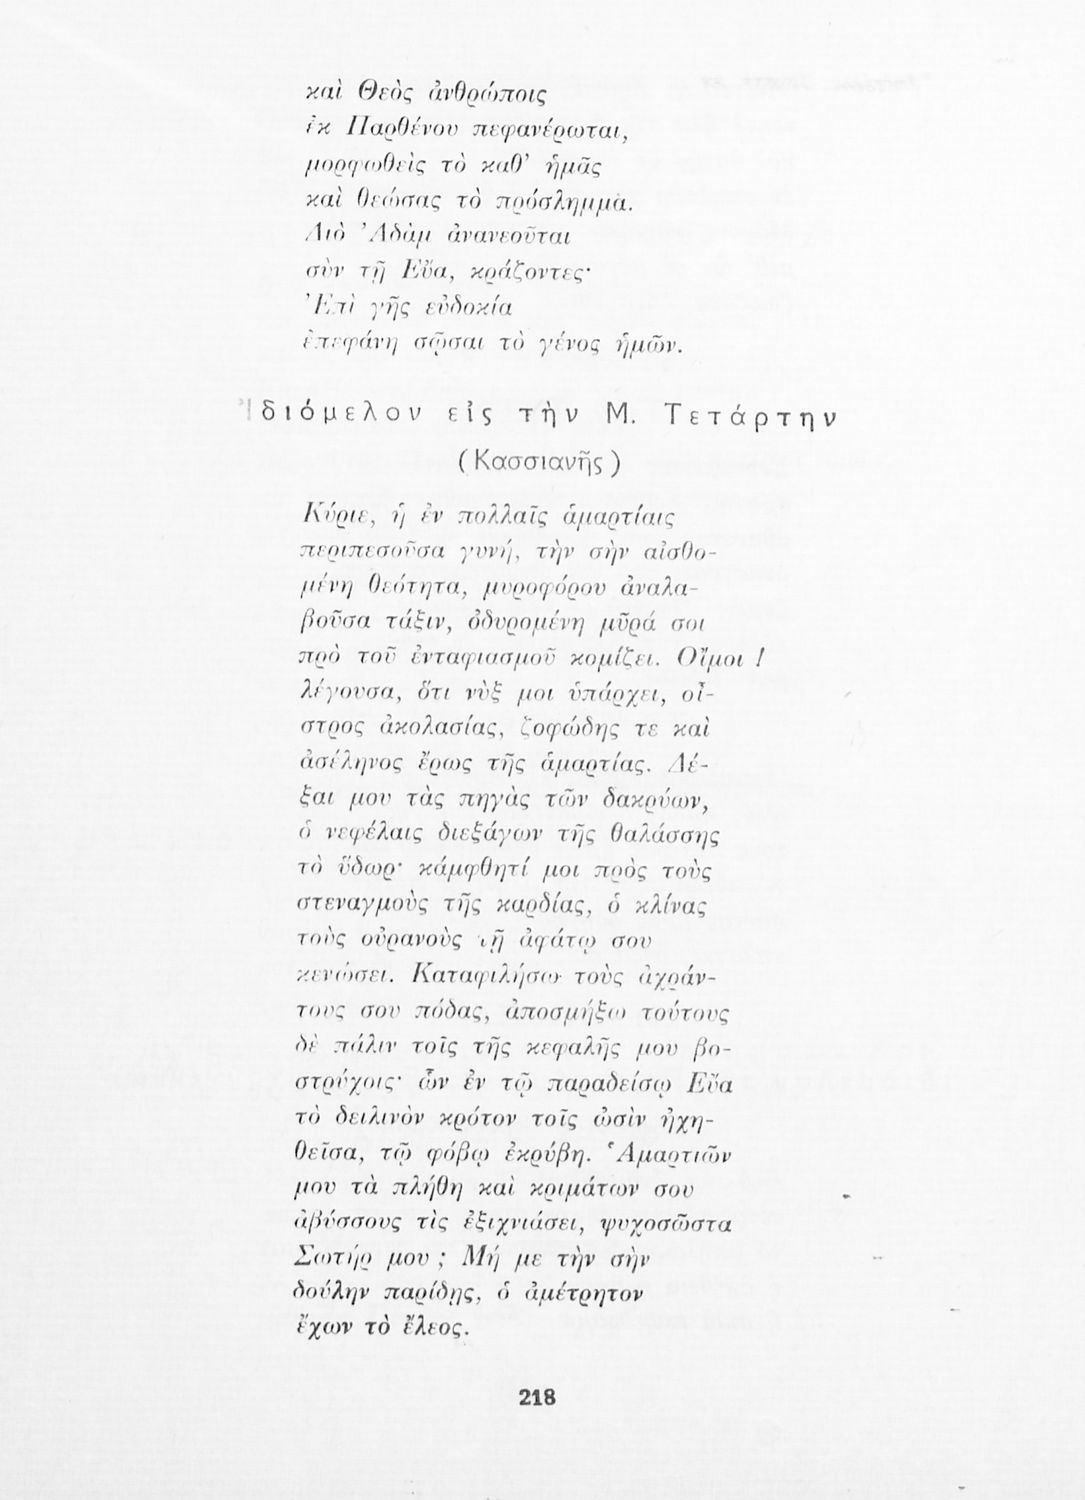 καὶ Θεὸς ἀνθρώποις
ἐκ Παρθένου πεφανέρωται,
μορφωθεὶς τὸ καθ' ἡμᾶς
καὶ θεώσας τὸ πρόσλημμα.
Διὸ Ἀδὰμ ἀνανεοῦται
σὺν τῇ Εὔα, κράζοντες·
Ἐπὶ γῆς εὐδοκία
ἐπεφάνη σῶσαι τὸ γένος ἡμῶν.
Ἰδιόμελον εἰς τὴν Μ. Τετάρτην
(Κασσιανῆς)
Κύριε, ἡ ἐν πολλαῖς ἁμαρτίαις
περιπεσοῦσα γυνή, τὴν σὴν αἰσθο-
μένη θεότητα, μυροφόρου ἀναλα-
βοῦσα τάξιν, ὀδυρομένη μῦρά σοι
πρὸ τοῦ ἐνταφιασμοῦ κομίζει. Οἴμοι !
λέγουσα, ὅτι νὺξ μοι ὑπάρχει, οἶ-
στρος ἀκολασίας, ζοφώδης τε καὶ
ἀσέληνος ἔρως τῆς ἁμαρτίας. Δέ-
ξαι μου τὰς πηγὰς τῶν δακρύων,
ὁ νεφέλαις διεξάγων τῆς θαλάσσης
τὸ ὕδωρ· κάμφθητί μοι πρὸς τοὺς
στεναγμοὺς τῆς καρδίας, ὁ κλίνας
τοὺς οὐρανοὺς τῇ ἀφάτῳ σου
κενώσει. Καταφιλήσω τοὺς ἀχράν-
τους σου πόδας, ἀποσμήξω τούτους
δὲ πάλιν τοῖς τῆς κεφαλῆς μου βο-
στρύχοις· ὧν ἐν τῷ παραδείσῳ Εὔα
τὸ δειλινὸν κρότον τοῖς ὠσὶν ἠχη-
θεῖσα, τῷ φόβῳ ἐκρύβη. Ἁμαρτιῶν
μου τὰ πλήθη καὶ κριμάτων σου
ἀβύσσους τὶς ἐξιχνιάσει, ψυχοσῶστα
Σωτήρ μου ; Μή με τὴν σὴν
δούλην παρίδῃς, ὁ ἀμέτρητον
ἔχων τὸ ἔλεος.
218